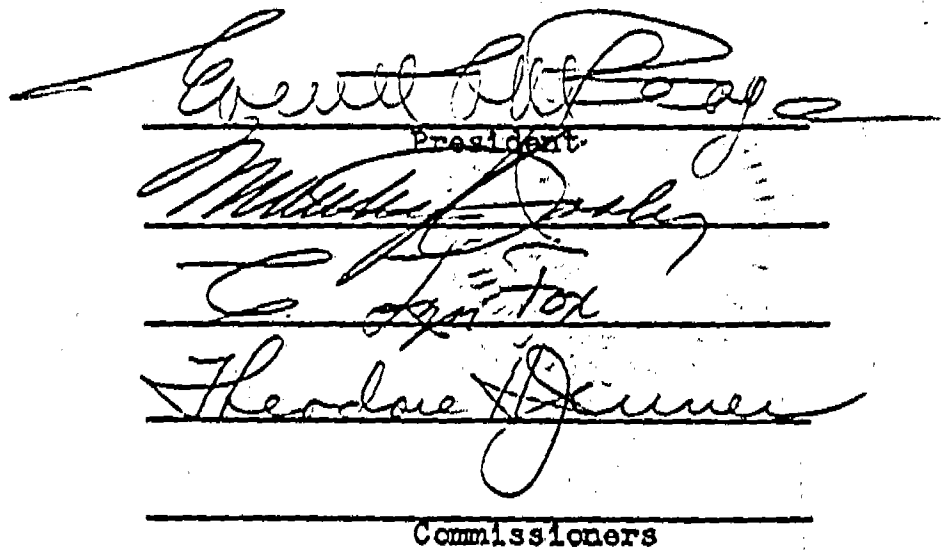 Everett C. McKeage
President
Matthew Dooley
C Lyn Fox
Theodore H Jenner
Commissioners